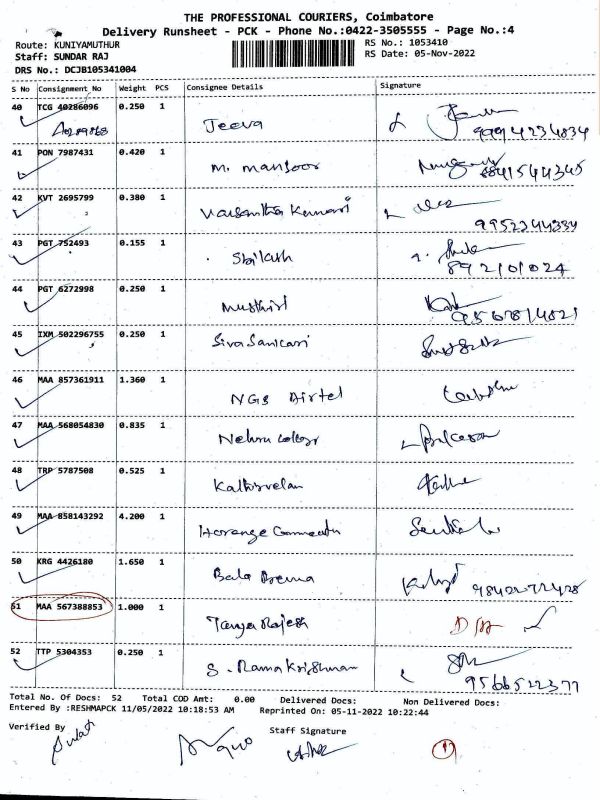 THE PROFESSIONAL COURIERS, Coimbatore
Delivery Runsheet - PCK - Phone No.:0422-3505555 - Page No.:4
Route: KUNIYAMUTHUR RS No.: 1053410
Staff: SUNDAR RAJ RS Date: 05-Nov-2022
DRS No.: DCJB105341004
S No Consignment No Weight PCS Consignee Details Signature
40 TCG 40286096 0.250 1 Jeeva
9994234834
41 PON 7987431 0.420 1 M. mansoor
42 KVT 2695799 0.380 1 Vasantha Kumari
9952244334
43 PGT 752493 0.155 1
892101024
44 PGT 6272998 0.250 1
45 IXM 502296755 0.250 1 Siva Sankari
46 MAA 857361911 1.360 1 NGS Airtel
47 MAA 568054830 0.835 1 Nehru College
48 TRP 5787508 0.525 1 Kathirvelan
49 MAA 858143292 4.200 1
50 KRG 4426180 1.650 1 Bala
51 MAA 567388853 1.000 1 Rajesh
52 TTP 5304353 0.250 1 S. Rama Krishnan
9566522377
Total No. Of Docs: 52 Total COD Amt: 0.00 Delivered Docs: Non Delivered Docs:
Entered By :RESHMAPCK 11/05/2022 10:18:53 AM Reprinted On: 05-11-2022 10:22:44
Verified By Staff Signature